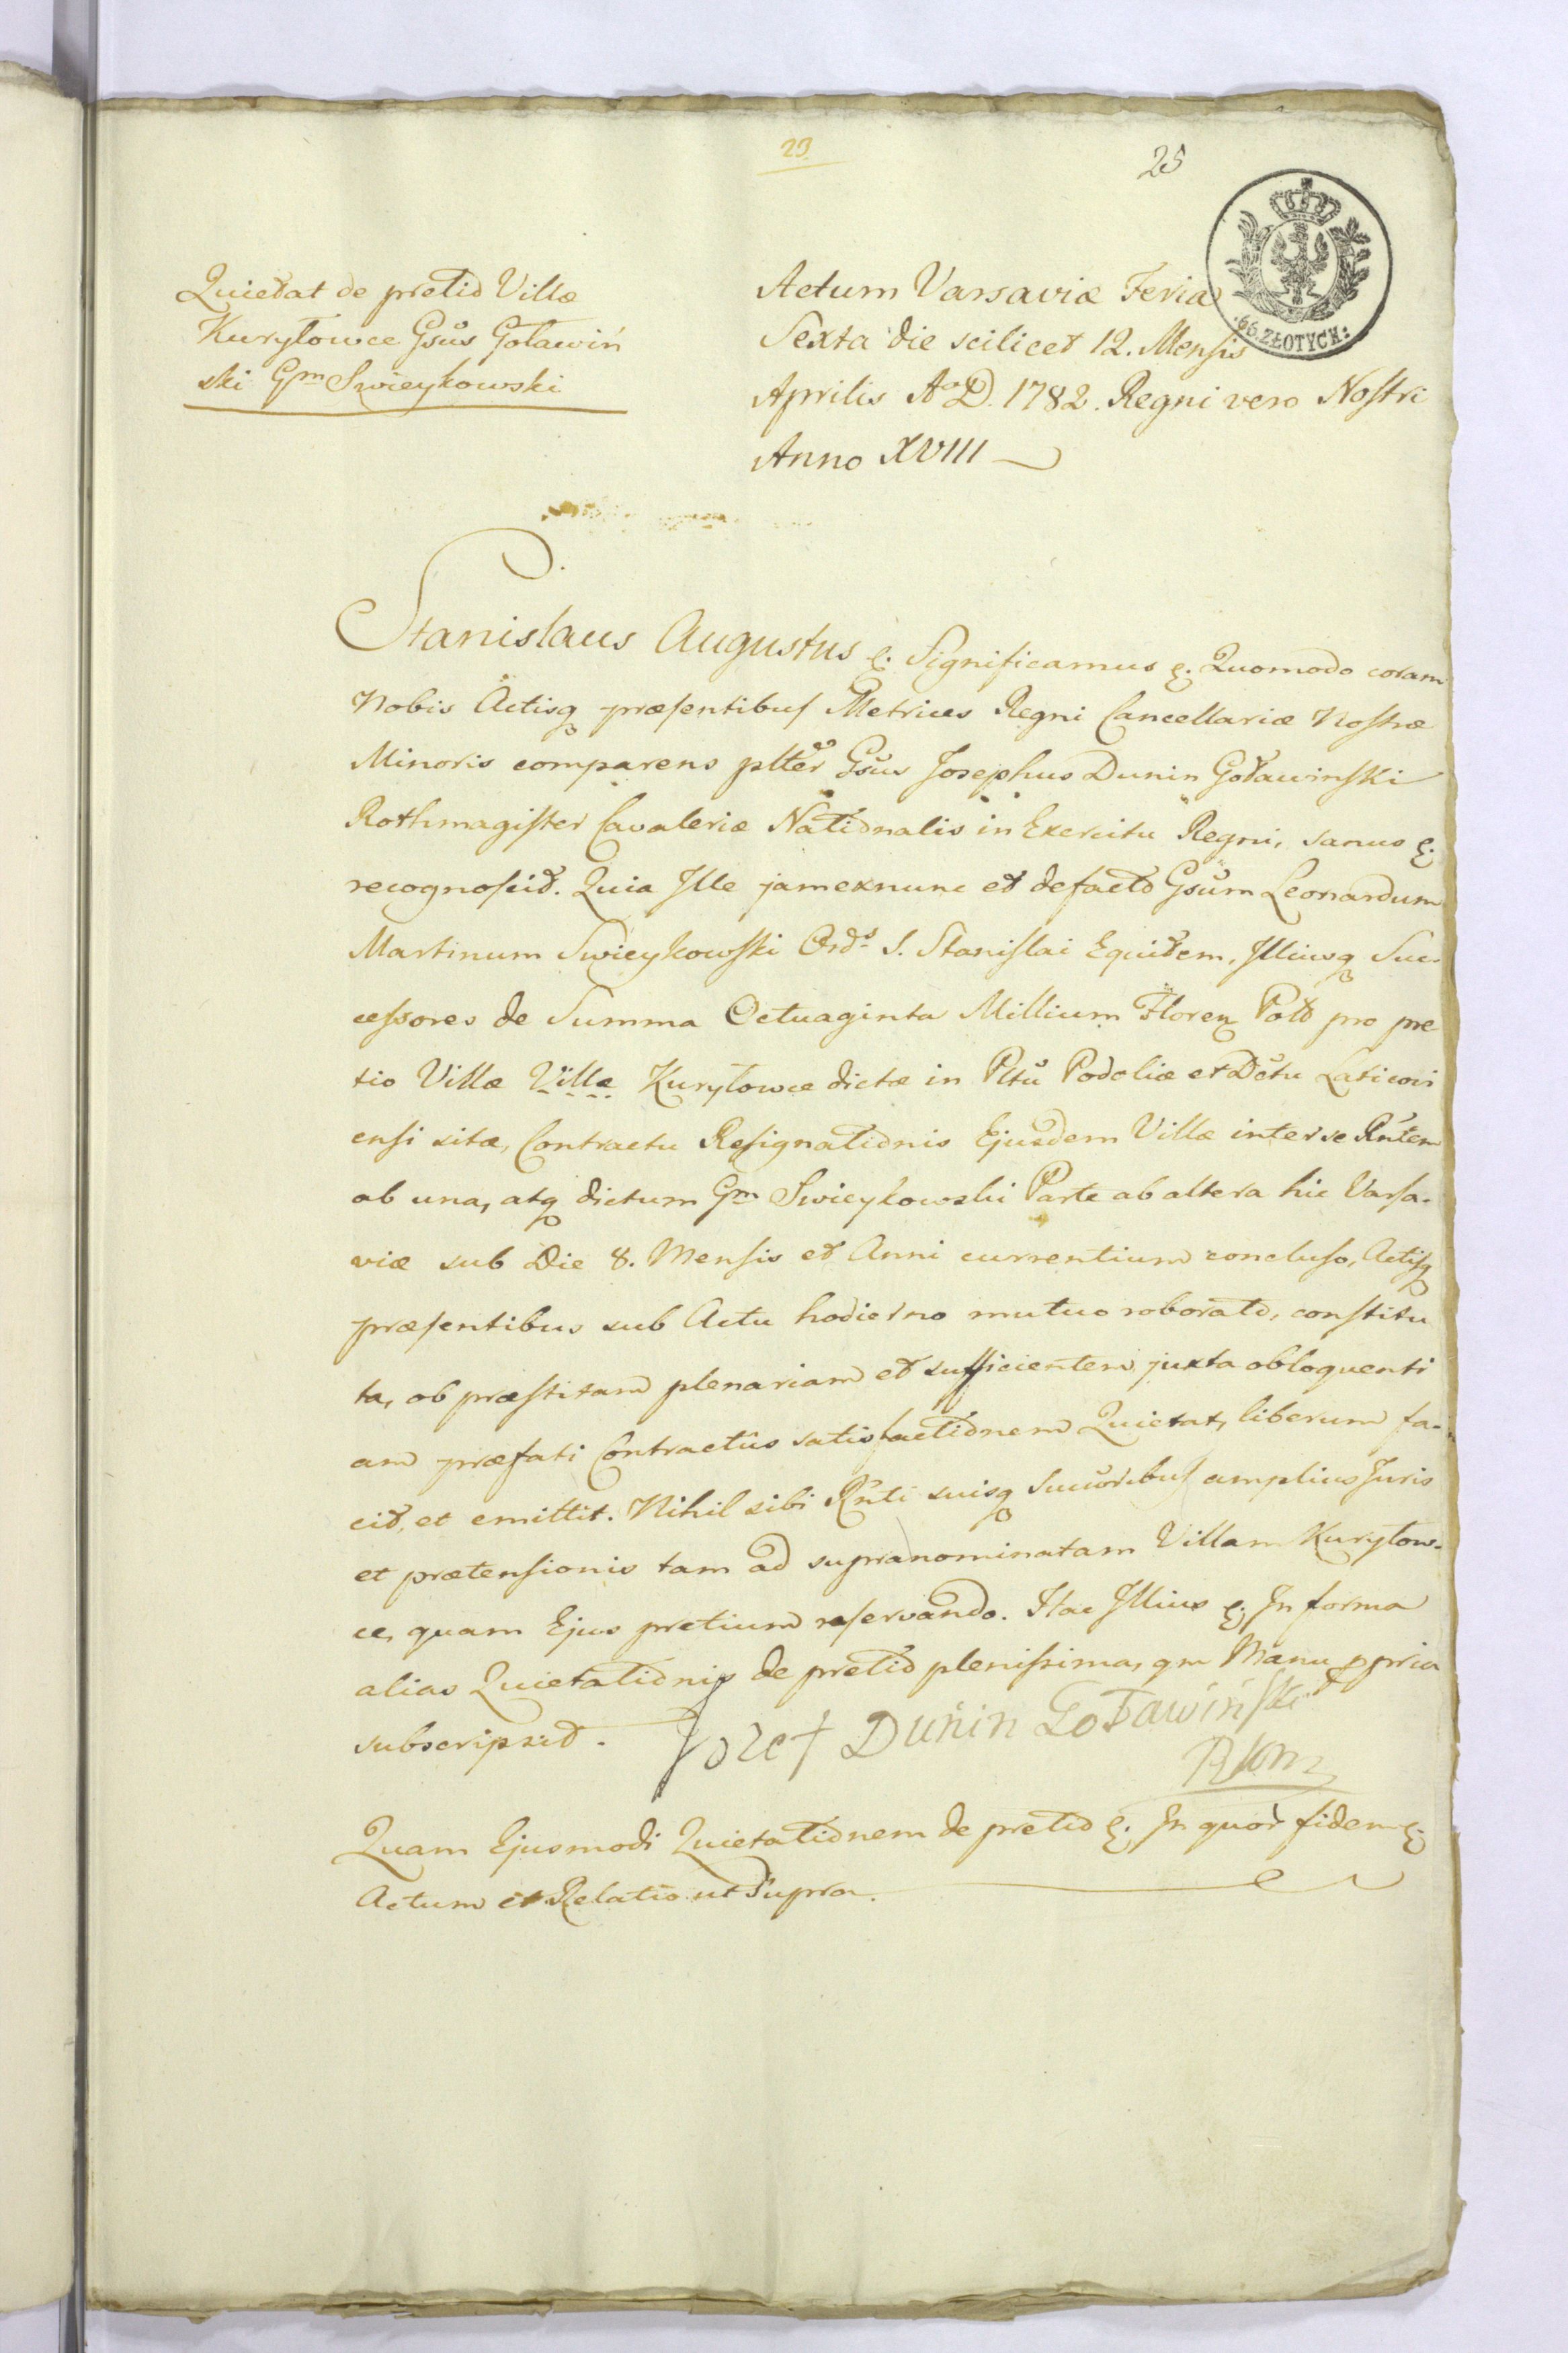 23
25
66. ZŁOTYCH:
Quietat de pretio Villæ
Kuryłowce Gsus Goławiń
ski Gm Swieykowski
Actum Varsaviæ Feria
Sexta die scilicet 12. Mensis
Aprilis Ao D. 1782. Regni vero Nostri
Anno XVIII
Stanislaus Augustus &. Significamus &. Quomodo coram
Nobis Actisq præsentibus Metrices Regni Cancellariæ Nostræ
Minoris comparens pltter Gsus Josephus Dunin Goławinski
Rothmagister Cavaleriæ Nationalis in Exercitu Regni, sanus &.
recognoscit. Quia Ille jamexnunc et defacto Gsum Leonardum
Martinum Swieykowski Ords S. Stanislai Equitem, Illiusq Suc-
cessores de Summa Octuaginta Millium Floren Pol pro pre
tio Villæ Villæ Kuryłowce dictæ in Pltu Podoliæ et Dctu Laticovi
ensi sitæ, Contractu Resignationis Ejusdem Villæ inter se Rntem
ab una, atq dictum Gm Swieykowski Parte ab altera hic Varsa-
viæ sub Die 8. Mensis et Anni currentium concluso, Actisq
præsentibus sub Actu hodierno mutuo roborato, constitu
ta, ob præstitam plenariam et sufficientem juxta obloquenti
am præfati Contractûs satisfactionem Quietat, liberum fa-
cit, et emittit. Nihil sibi Rnti suisq Succoribus amplius Juris
et prætensionis tam ad supranominatam Villam Kuryłow-
ce, quam Ejus pretium reservando. Hac Illius &. In forma
alias Quietationis de pretio plenissima, qm Manu ppria
subscripsit. Jozef Dunin Goławiński
Quam Ejusmodi Quietationem de pretio &. In quor fidem &.
Actum et Relatio ut Supra.